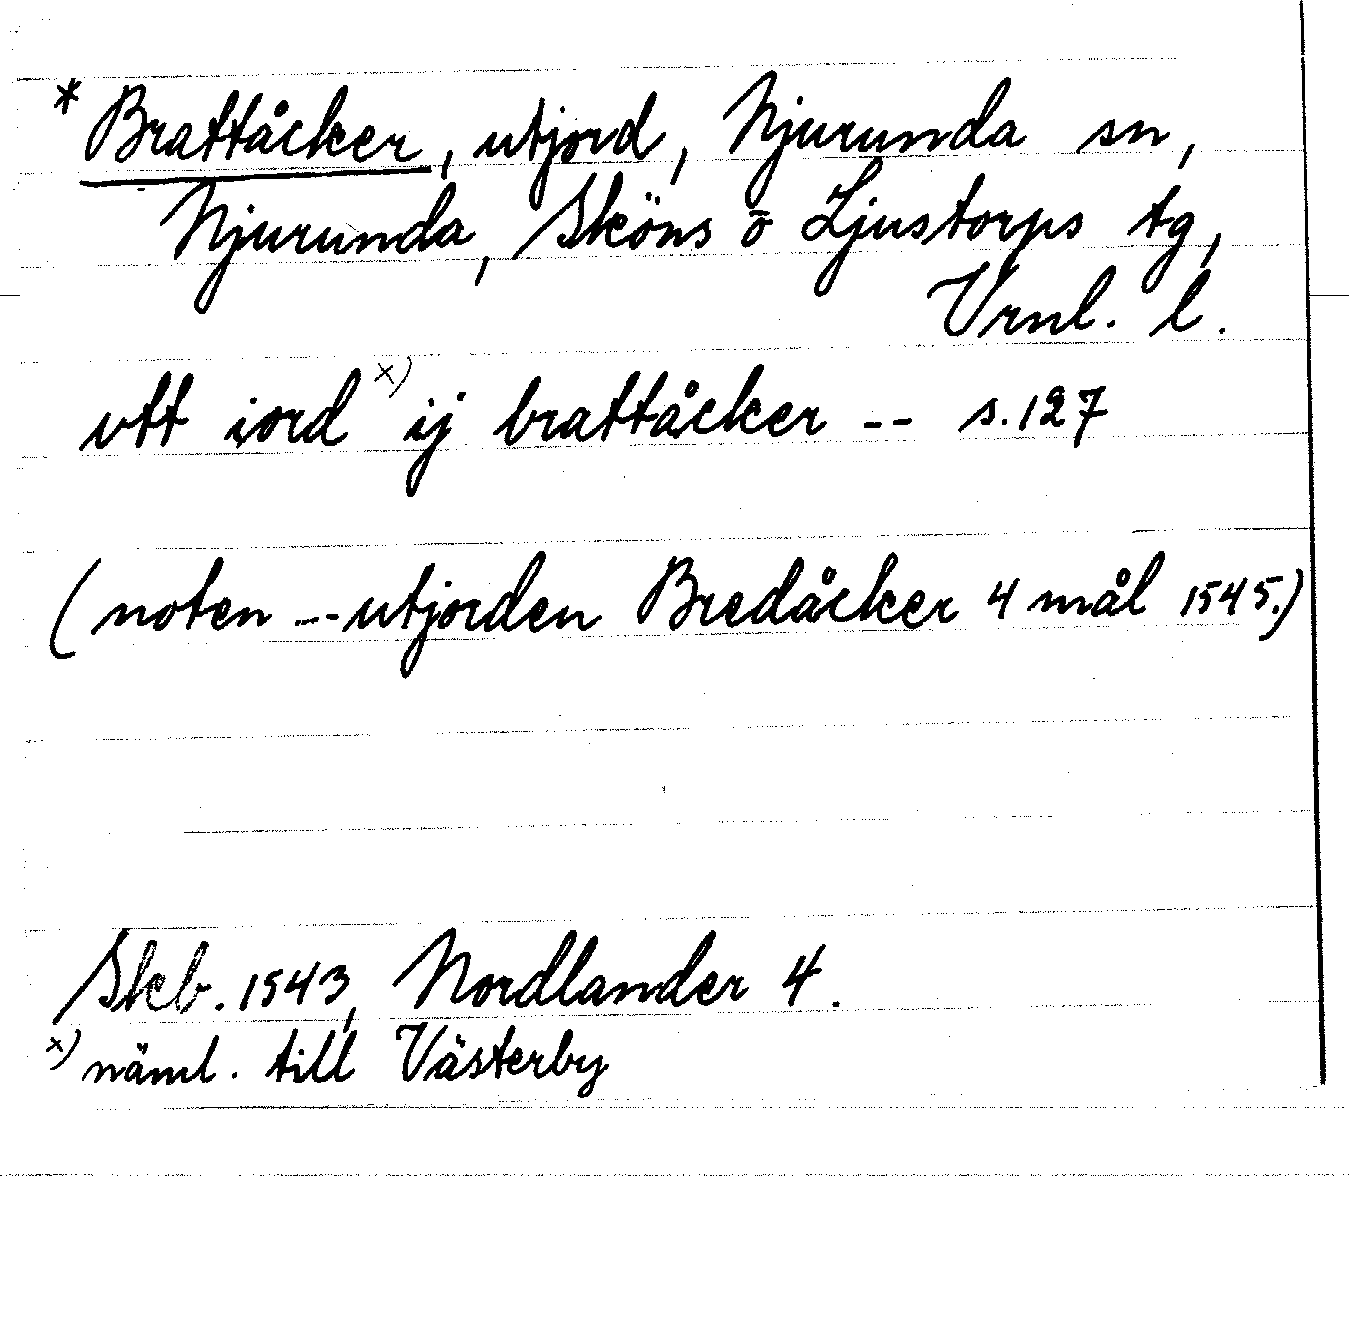 * Brattåcker, utjord, Njurunda sn,
Njurunda, Sköns o Ljustorps tg,
Vrnl. l.
vtt iord x) ij brattåcker -- s. 127
(noten --- utjorden Bredåcker 4 mål 1545.)
Skb. 1543, Nordlander 4.
x) näml. till Västerby